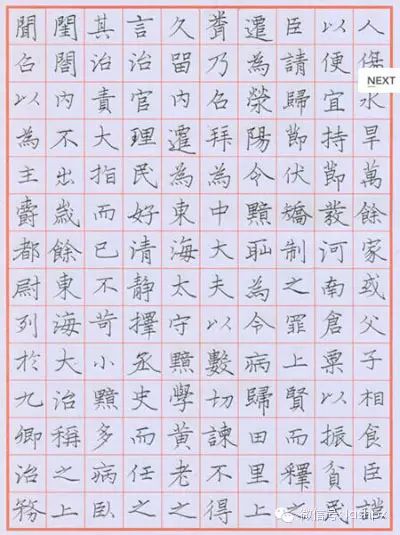 人傷水旱萬餘家或父子相食臣謹
以便宜持節發河南倉粟以振貧民
臣請歸節伏矯制之罪上賢而釋之
遷為滎陽令黯恥為令病歸田里上
乃召拜為中大夫以數切諫不得
久留內遷為東海太守黯學黃老之
言治官理民好清靜擇丞史而任之
其治責大指而已不苛小黯多病臥
閨閤內不出歲餘東海大治稱之上
聞召以為主爵都尉列於九卿治務
NEXT
微信号: